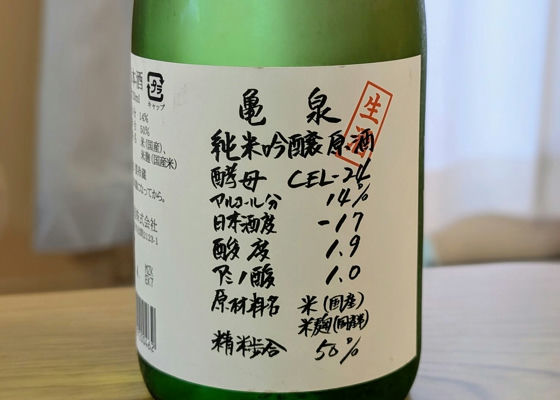 亀泉
生酒
純米吟醸原酒
酵母 CEL-24
アルコール分 14%
日本酒度 -17
酸度 1.9
アミノ酸 1.0
原材料名 米(国産)
米麹(国産米)
精米歩合 50%
本酒
キャップ
14%
50%
米(国産)、
米麹(国産米)
になってから。
式会社
2123-1